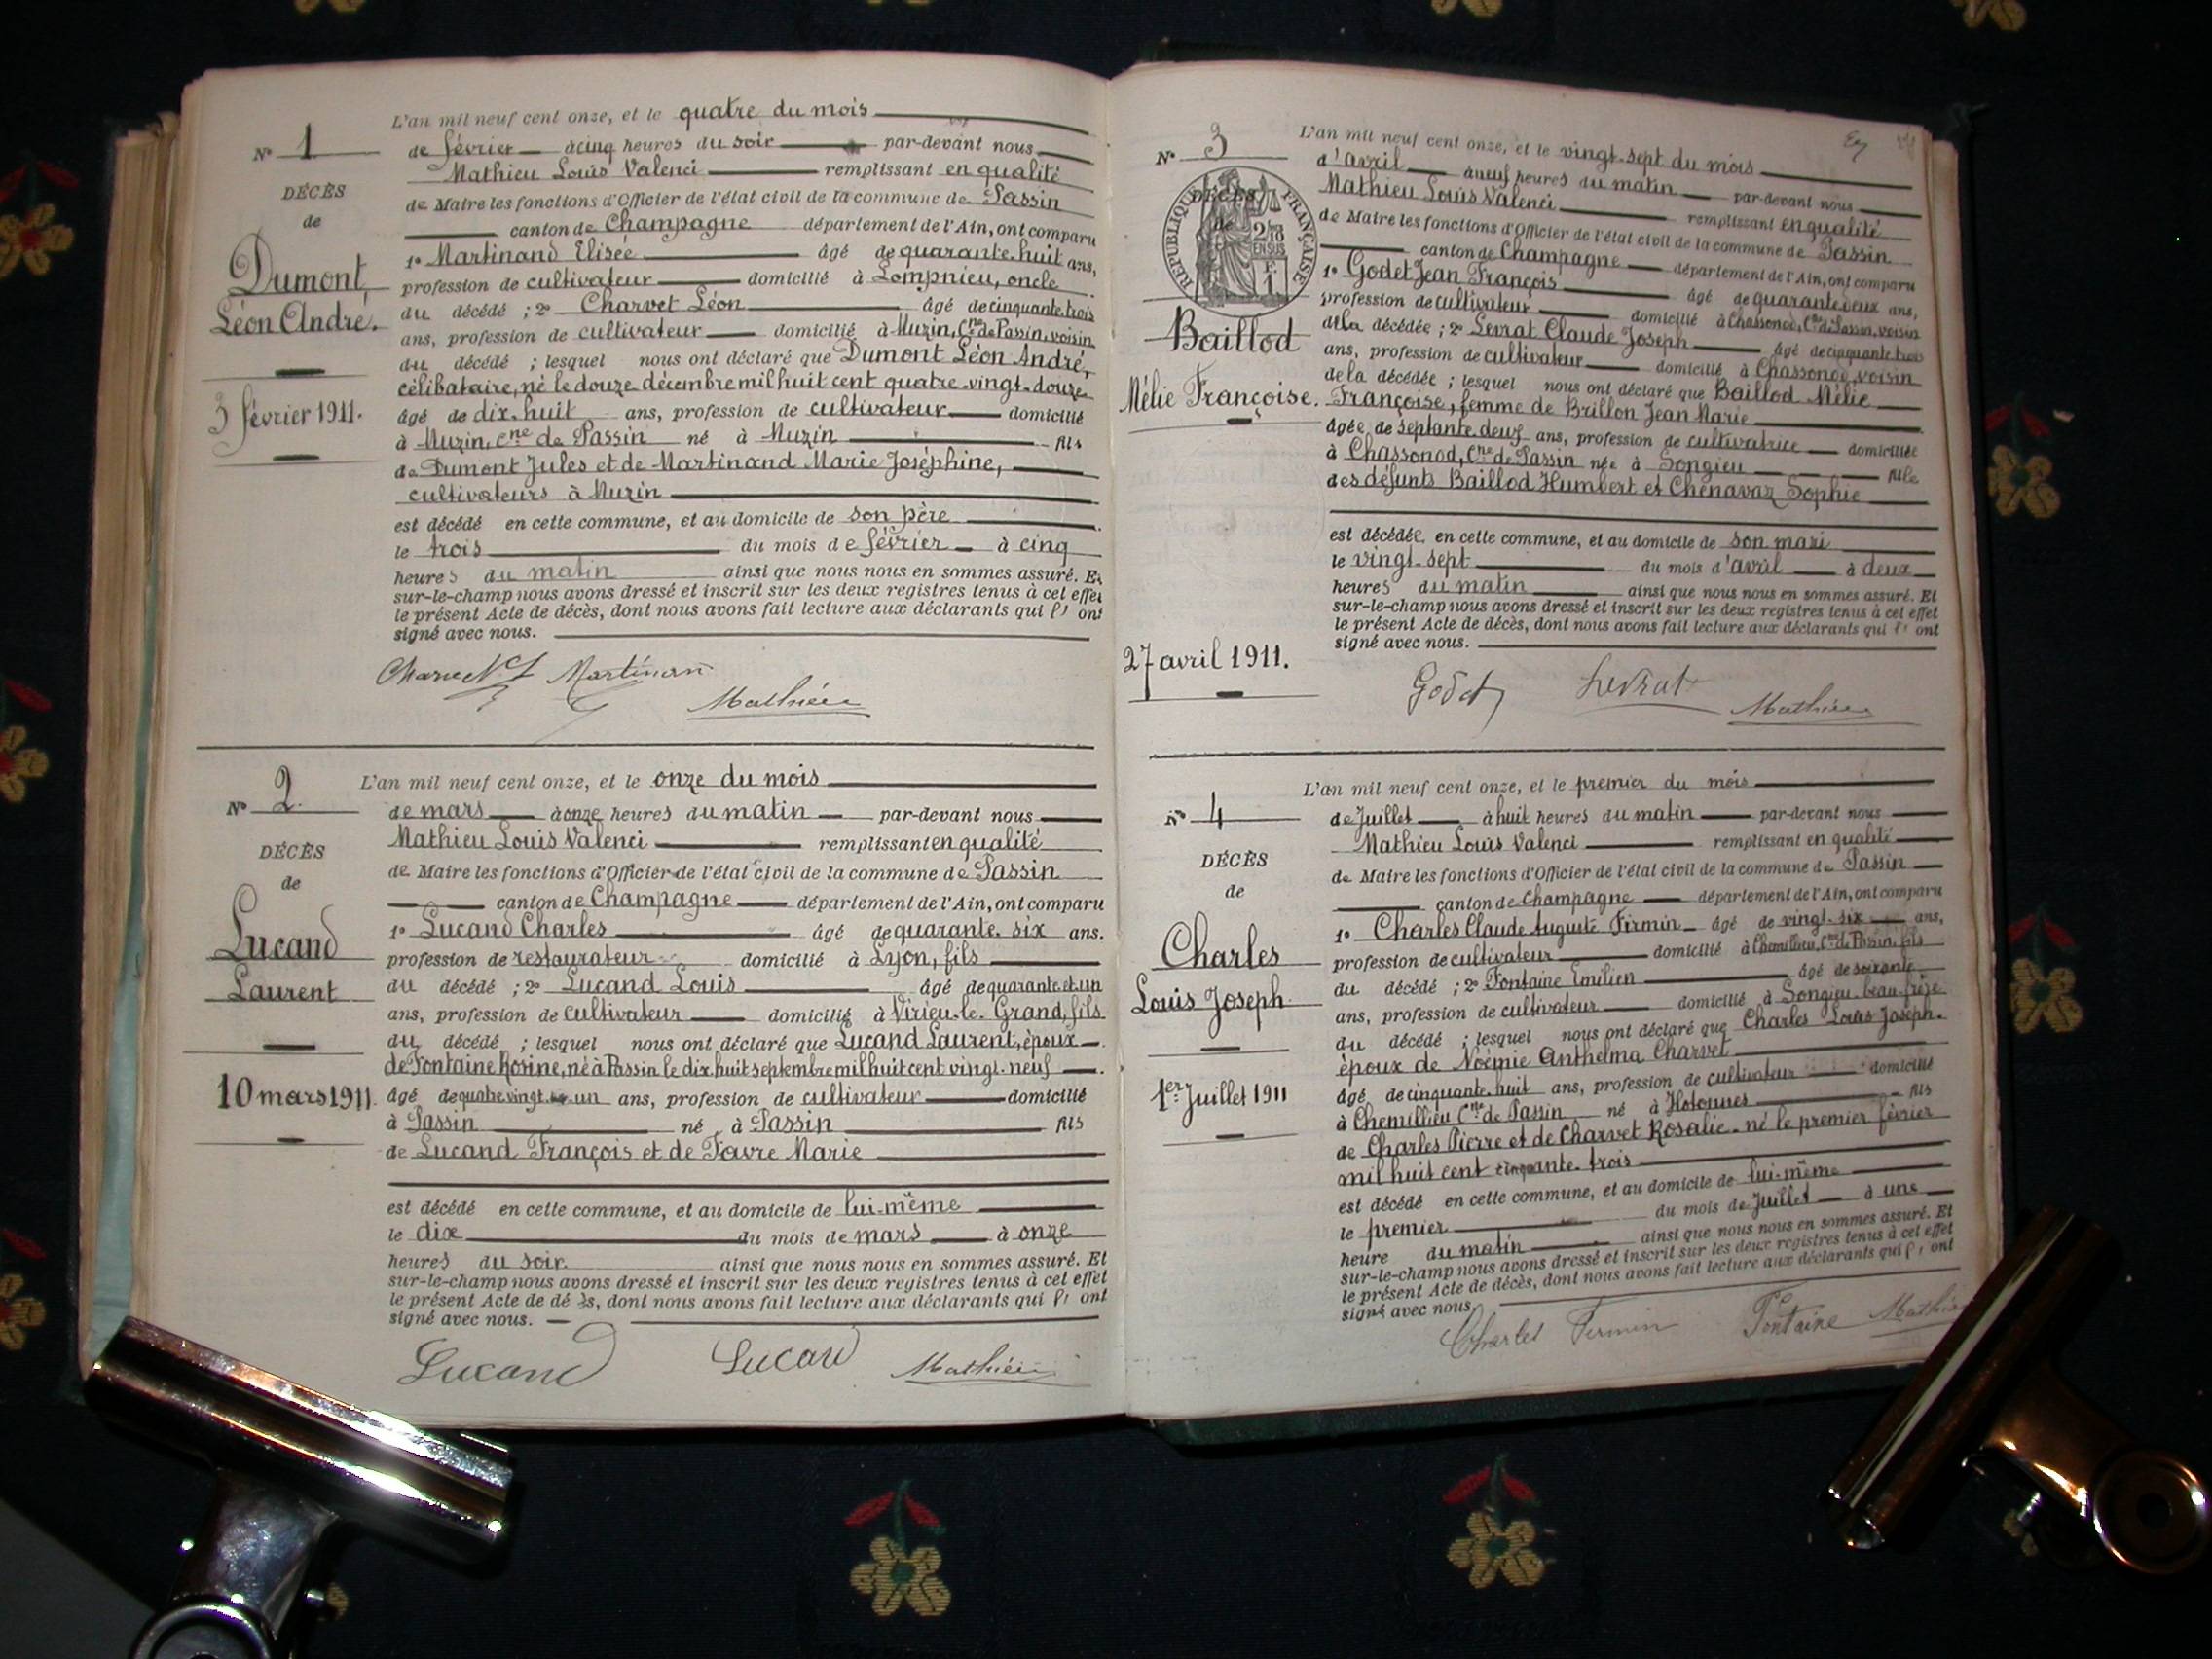 N° 1
DÉCÈS
de
Dumont
Léon André.
3 février 1911.
L'an mil neuf cent onze, et le quatre du mois
de février à cinq heures du soir par-devant nous
Mathieu Louis Valenci remplissant en qualité
de Maire les fonctions d'Officier de l'état civil de la commune de Passin
canton de Champagne département de l'Ain, ont comparu
1° Martinand Elisée âgé de quarante huit ans,
profession de cultivateur domicilié à Lompnieu, oncle
du décédé ; 2° Charvet Léon âgé de cinquante trois
ans, profession de cultivateur domicilié à Muzin, Cne de Passin, voisin
du décédé ; lesquel nous ont déclaré que Dumont Léon André,
célibataire, né le douze décembre mil huit cent quatre-vingt-douze
âgé de dix-huit ans, profession de cultivateur domicilié
à Muzin, cne de Passin né à Muzin fils
de Dumont Jules et de Martinand Marie Joséphine,
cultivateurs à Muzin
est décédé en cette commune, et au domicile de son père
le trois du mois de février à cinq
heures du matin ainsi que nous nous en sommes assuré. Et
sur-le-champ nous avons dressé et inscrit sur les deux registres tenus à cet effet
le présent Acte de décès, dont nous avons fait lecture aux déclarants qui l' ont
signé avec nous.
Charvet Martinan Mathieu
N° 2
DÉCÈS
de
Lucand
Laurent
10 mars 1911.
L'an mil neuf cent onze, et le onze du mois
de mars à onze heures du matin par-devant nous
Mathieu Louis Valenci remplissant en qualité
de Maire les fonctions d'Officier de l'état civil de la commune de Passin
canton de Champagne département de l'Ain, ont comparu
1° Lucand Charles âgé de quarante six ans.
profession de restaurateur domicilié à Lyon, fils
du décédé ; 2° Lucand Louis âgé de quarante et un
ans, profession de cultivateur domicilié à Virieu-le-Grand, fils
du décédé ; lesquel nous ont déclaré que Lucand Laurent, époux
de Fontaine Rosine, né à Passin le dix huit septembre mil huit cent vingt-neuf
âgé de quatre vingt un ans, profession de cultivateur domicilié
à Passin né à Passin fils
de Lucand François et de Favre Marie
est décédé en cette commune, et au domicile de lui-même
le dix du mois de mars à onze
heures du soir ainsi que nous nous en sommes assuré. Et
sur-le-champ nous avons dressé et inscrit sur les deux registres tenus à cet effet
le présent Acte de décès, dont nous avons fait lecture aux déclarants qui l' ont
signé avec nous.
Lucand Lucand Mathieu
N° 3
DÉCÈS
de
RÉPUBLIQUE FRANÇAISE
2/10
EN SUS
1
Baillod
Mélie Françoise.
27 avril 1911.
L'an mil neuf cent onze, et le vingt-sept du mois
d'avril à neuf heures du matin par-devant nous
Mathieu Louis Valenci remplissant en qualité
de Maire les fonctions d'Officier de l'état civil de la commune de Passin
canton de Champagne département de l'Ain, ont comparu
1° Godet Jean François âgé de quarante deux ans,
profession de cultivateur domicilié à Chassonod, Cne de Passin, voisin
de la décédée ; 2° Levrat Claude Joseph âgé de cinquante trois
ans, profession de cultivateur domicilié à Chassonod, voisin
de la décédée ; lesquel nous ont déclaré que Baillod Mélie
Françoise, femme de Brillon Jean Marie
âgée de septante deux ans, profession de cultivatrice domiciliée
à Chassonod, Cne de Passin née à Songieu fille
des défunts Baillod Humbert et Chenavaz Sophie
est décédée en cette commune, et au domicile de son mari
le vingt-sept du mois d'avril à deux
heures du matin ainsi que nous nous en sommes assuré. Et
sur-le-champ nous avons dressé et inscrit sur les deux registres tenus à cet effet
le présent Acte de décès, dont nous avons fait lecture aux déclarants qui l' ont
signé avec nous.
Godet Levrat Mathieu
N° 4
DÉCÈS
de
Charles
Louis Joseph
1er Juillet 1911
L'an mil neuf cent onze, et le premier du mois
de Juillet à huit heures du matin par-devant nous
Mathieu Louis Valenci remplissant en qualité
de Maire les fonctions d'Officier de l'état civil de la commune de Passin
canton de Champagne département de l'Ain, ont comparu
1° Charles Claude Auguste Firmin âgé de vingt-six ans,
profession de cultivateur domicilié à Chemillieu, Cne de Passin, fils
du décédé ; 2° Fontaine Emilien âgé de soixante
ans, profession de cultivateur domicilié à Songieu, beau-frère
du décédé ; lesquel nous ont déclaré que Charles Louis Joseph
époux de Noémie Anthelma Charvet
âgé de cinquante-huit ans, profession de cultivateur domicilié
à Chemillieu Cne de Passin né à Hotonnes fils
de Charles Pierre et de Charvet Rosalie né le premier février
mil huit cent cinquante-trois
est décédé en cette commune, et au domicile de lui-même
le premier du mois de Juillet à une
heure du matin ainsi que nous nous en sommes assuré. Et
sur-le-champ nous avons dressé et inscrit sur les deux registres tenus à cet effet
le présent Acte de décès, dont nous avons fait lecture aux déclarants qui l' ont
signé avec nous.
Charles Firmin Fontaine Mathieu